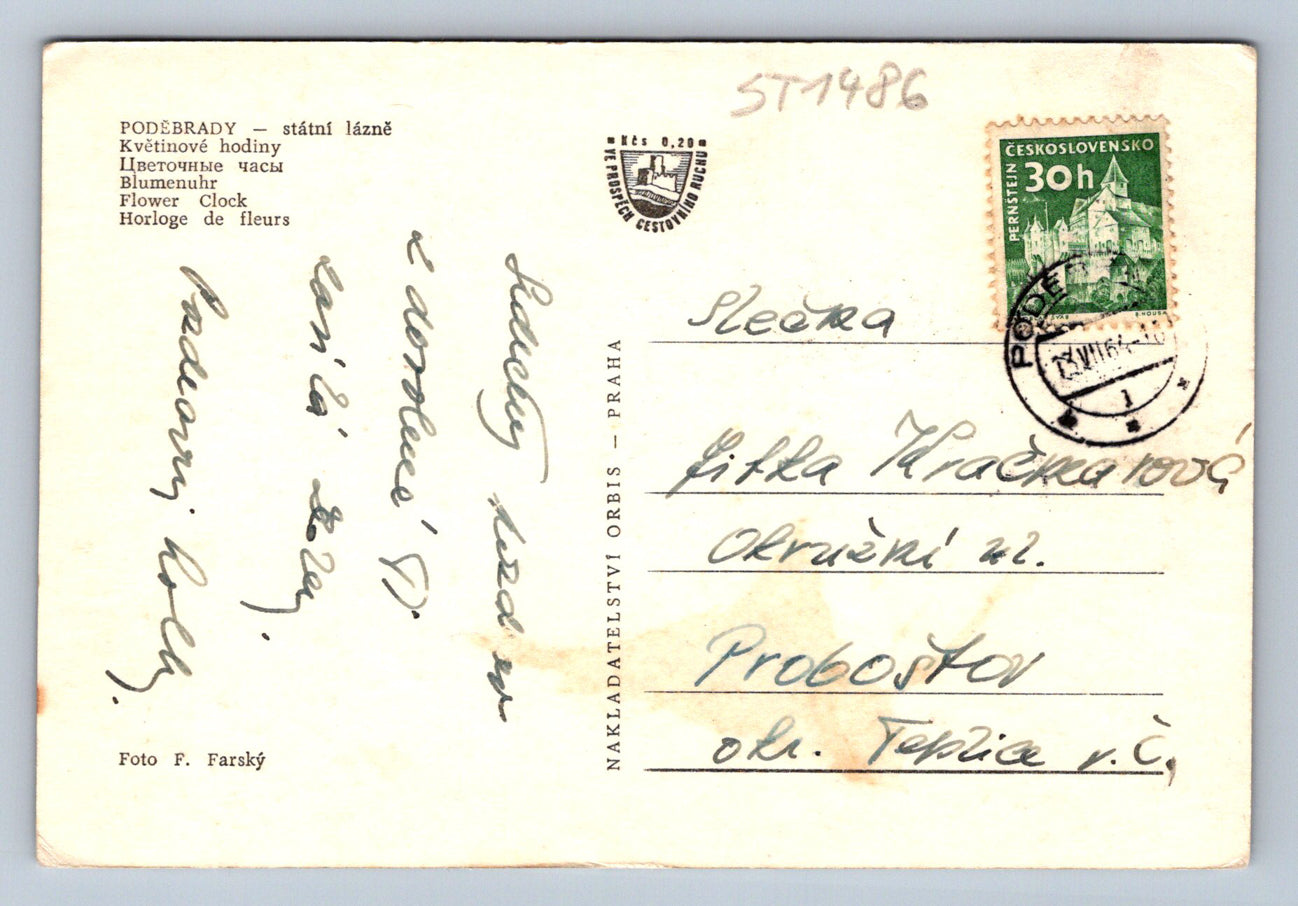 ST1486
PODĚBRADY — státní lázně
Květinové hodiny
Цветочные часы
Blumenuhr
Flower Clock
Horloge de fleurs
Kčs 0,20
VE PROSPĚCH CESTOVNÍHO RUCHU
ČESKOSLOVENSKO
30h
PERNŠTEJN
PODĚ
13.VII.64-18
1
Srdečný pozdrav
z dovolené Ti
zasílá
holky.
NAKLADATELSTVÍ ORBIS — PRAHA
Slečna
Jitka Kračmarová
Okružní ul.
Proboštov
okr. Teplice v.Č.
Foto F. Farský